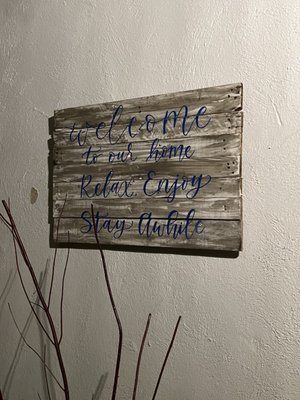 welcome
to our home
Relax. Enjoy
Stay Awhile